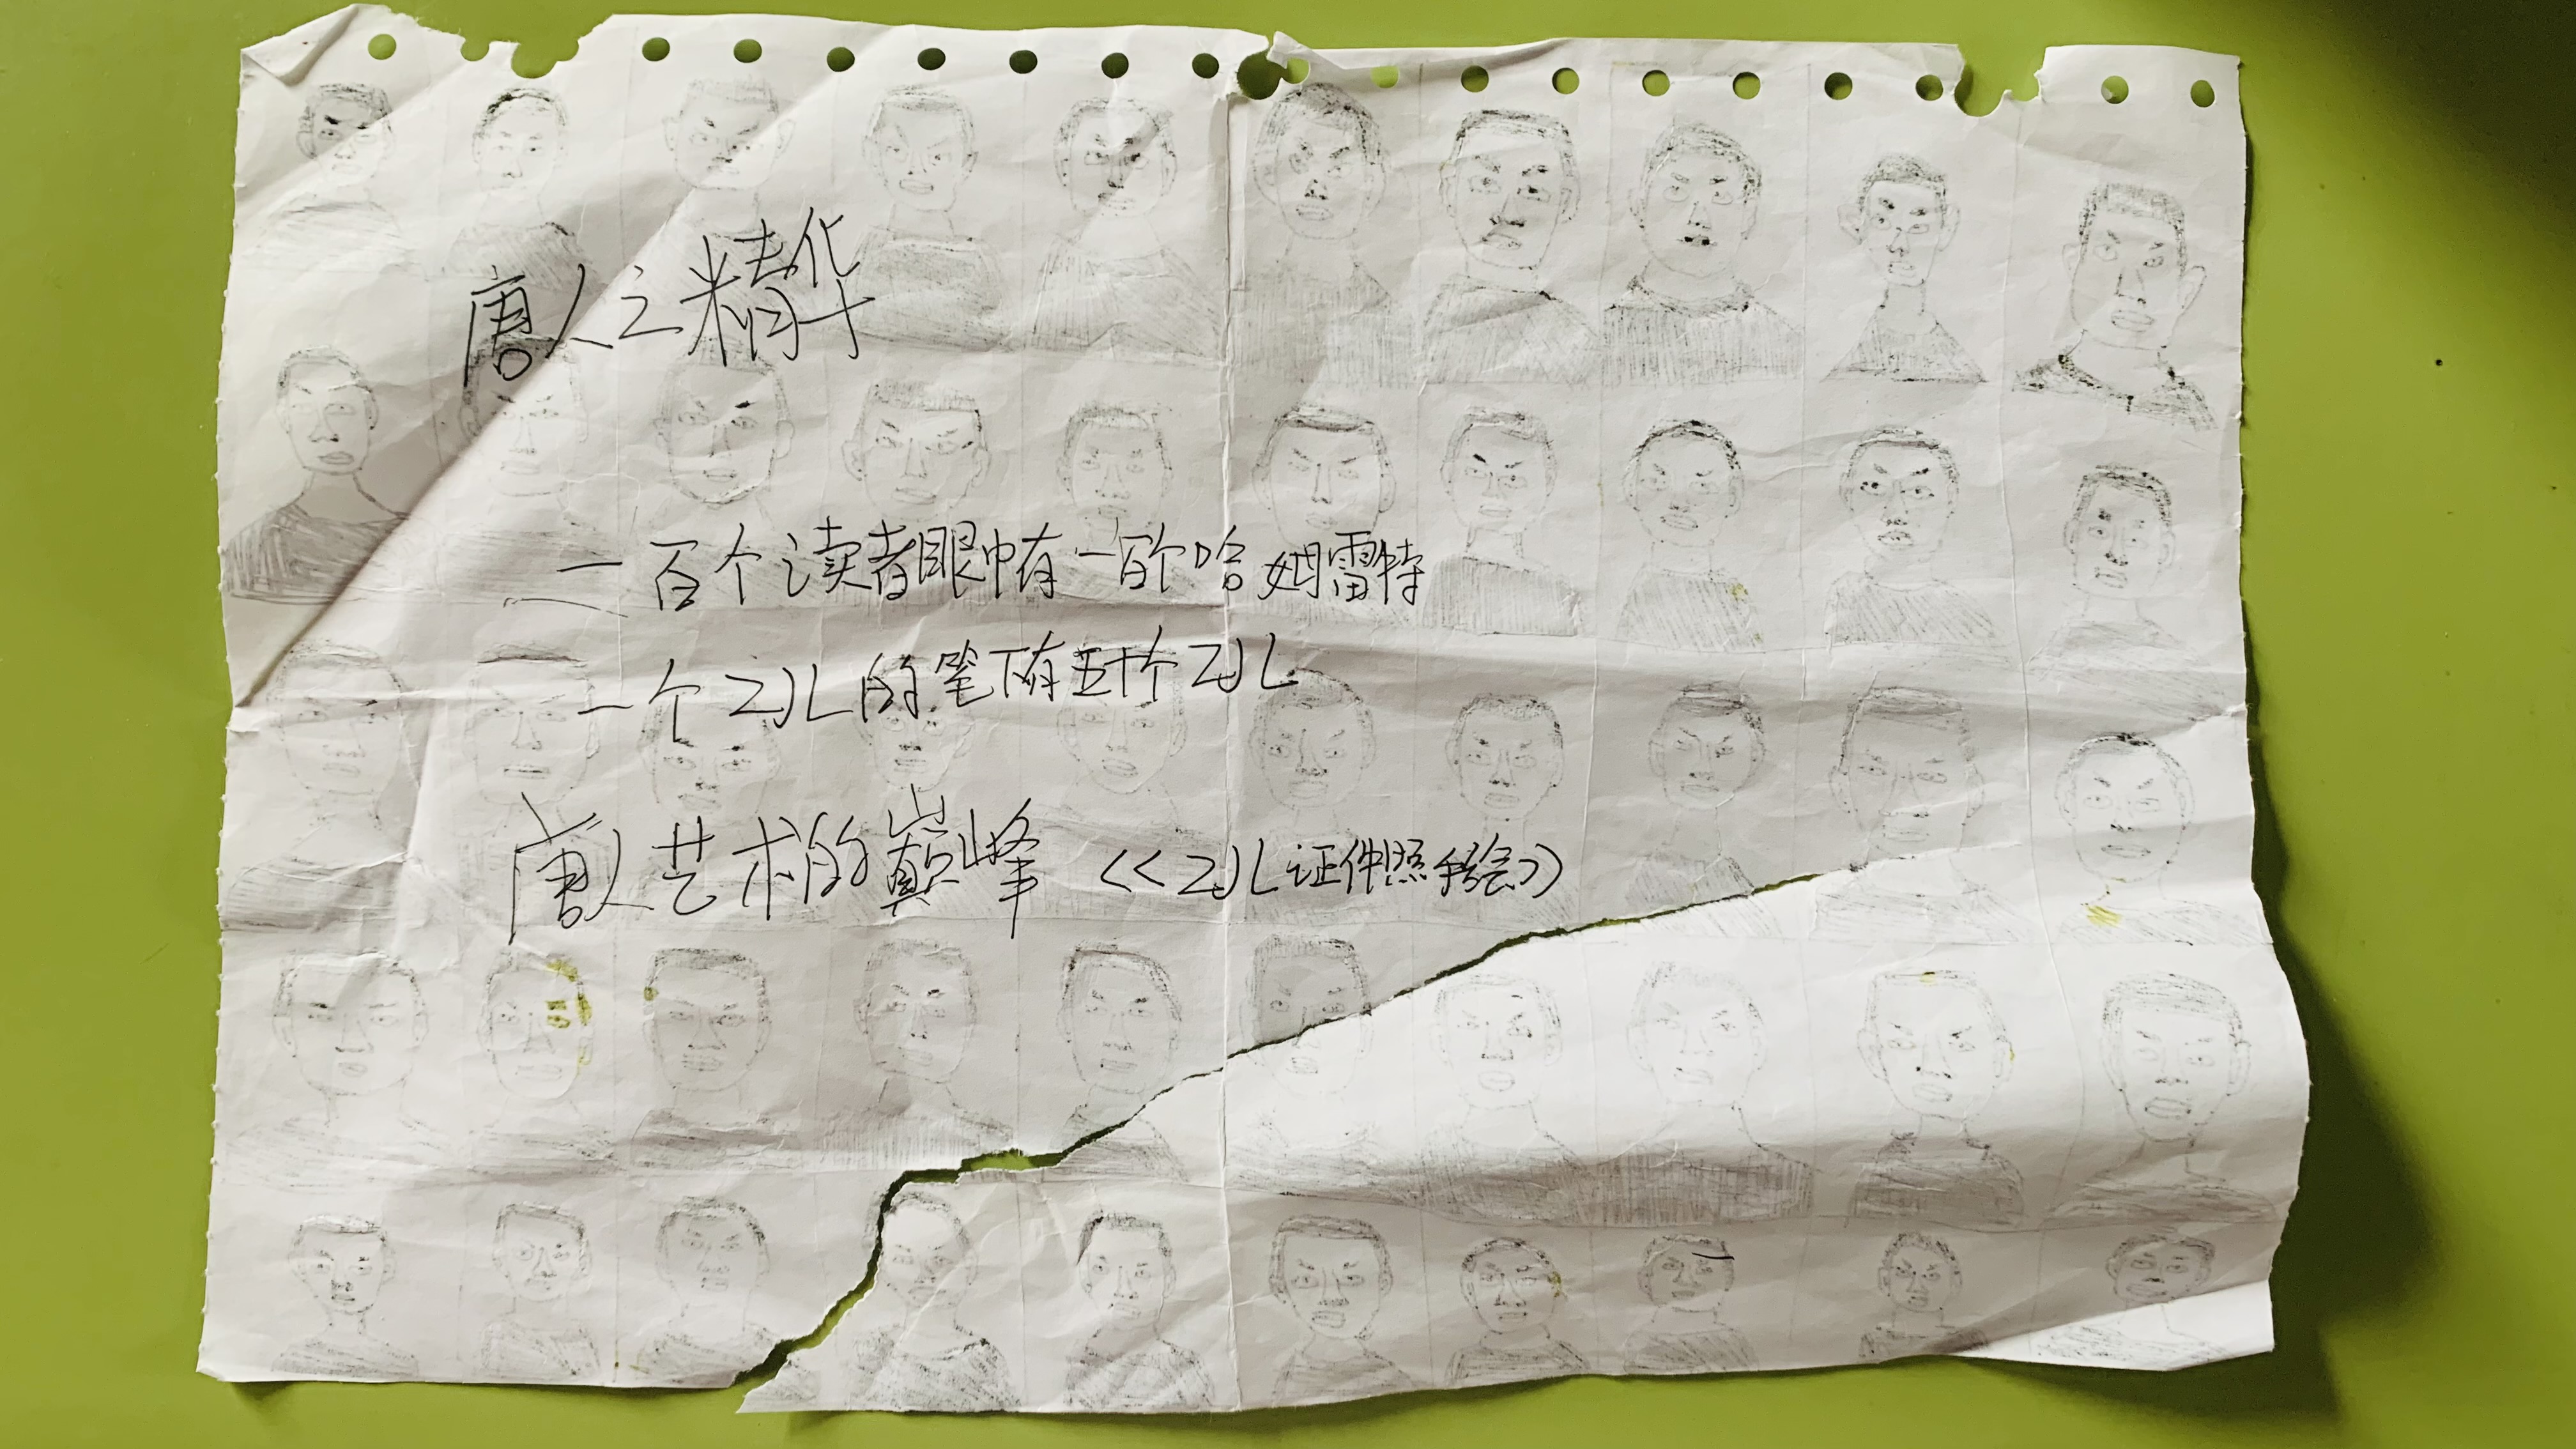 唐人之精华
一百个读者眼中有一百个哈姆雷特
一个ZJL的笔下有五十个ZJL
唐人艺术的巅峰《ZJL证件照手绘》